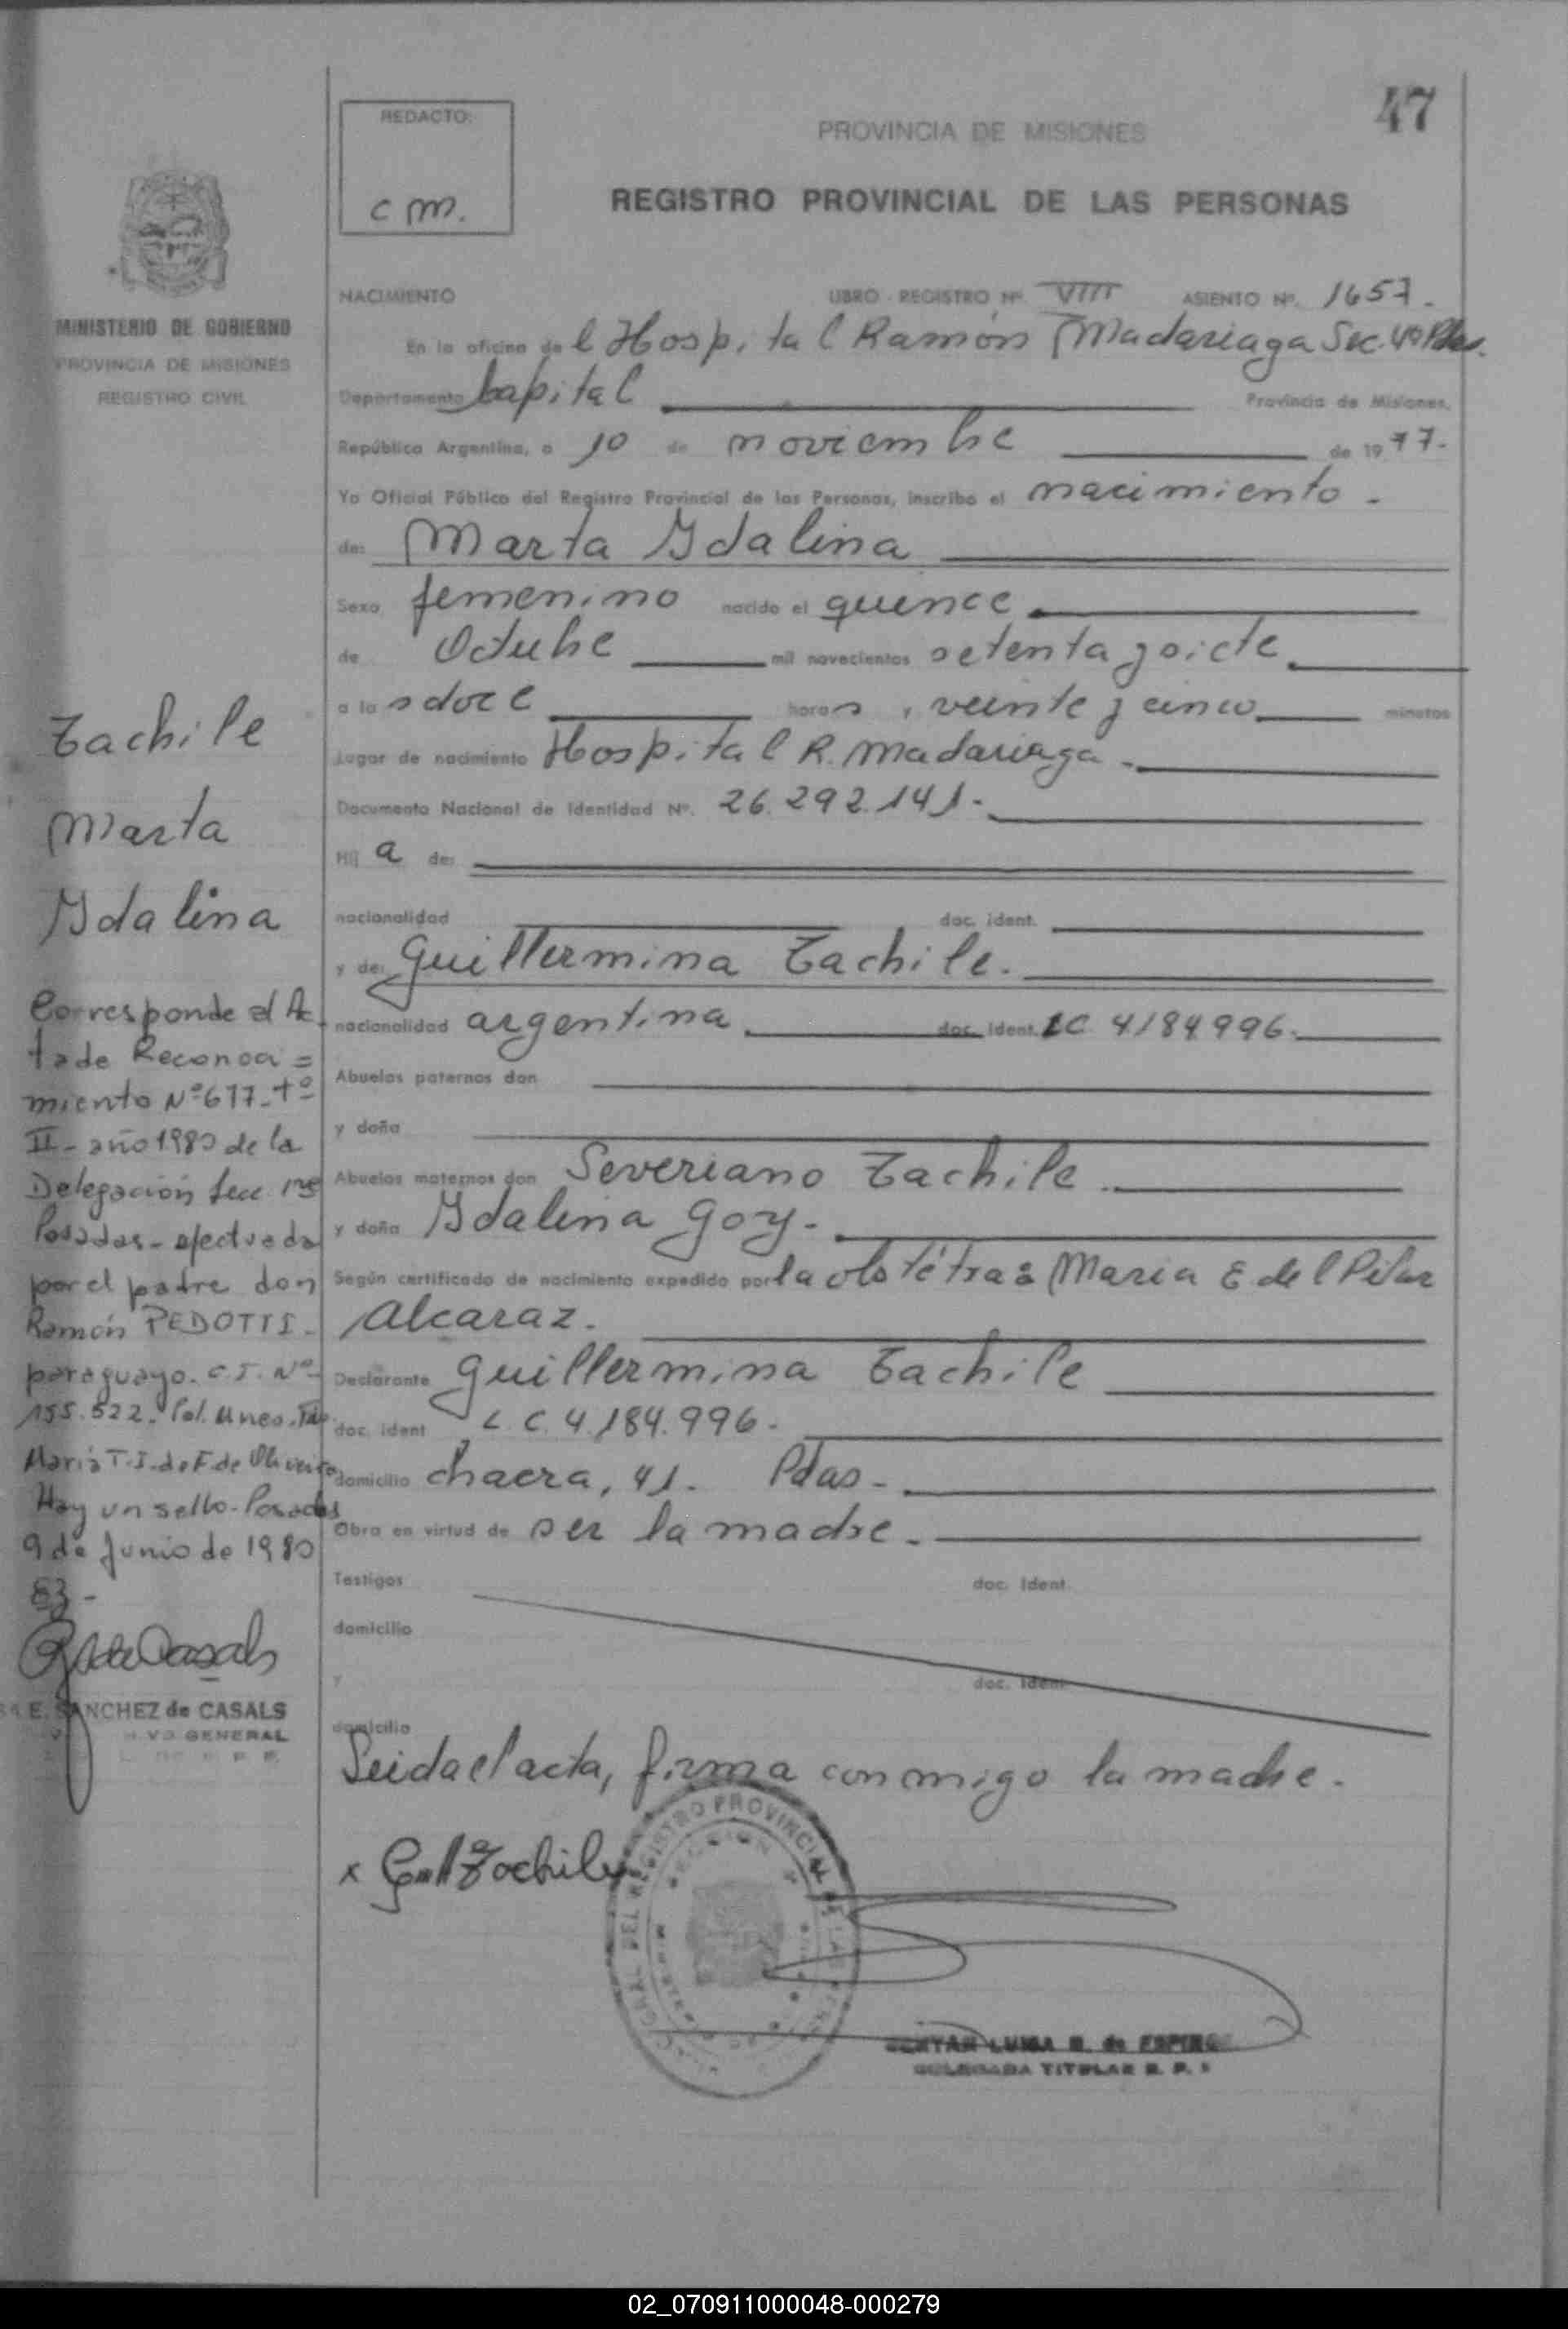 47
REDACTO:
c m.
PROVINCIA DE MISIONES
REGISTRO PROVINCIAL DE LAS PERSONAS
MINISTERIO DE GOBIERNO
PROVINCIA DE MISIONES
REGISTRO CIVIL
NACIMIENTO LIBRO REGISTRO Nº VIII ASIENTO Nº. 1657.
En la oficina del Hospital Ramón Madariaga Sec. 4º Pdas.
Departamento Capital Provincia de Misiones,
República Argentina, a 10 de noviembre de 1977.
Yo Oficial Público del Registro Provincial de las Personas, inscribo el nacimiento.
de: Marta Idalina
Sexo femenino nacido el quince
de Octubre mil novecientos setenta y siete
a las doce horas, veinte y cinco minutos
Lugar de nacimiento Hospital R. Madariaga.
Documento Nacional de Identidad Nº. 26.292.141.
Hij a de:
nacionalidad doc. ident.
y de: Guillermina Tachile.
nacionalidad argentina. doc. ident. LC 4184996.
Abuelos paternos don
y doña
Abuelos maternos don Severiano Tachile.
y doña Idalina Goy.
Según certificado de nacimiento expedido por la obstétra: Maria E del Pilar
Alcaraz.
Declarante Guillermina Tachile
doc. ident L.C. 4.184.996.
domicilio chacra, 41. Pdas.
Obra en virtud de ser la madre.
Testigos doc. ident.
domicilio
y doc. ident.
domicilio
Leida el acta, firma conmigo la madre.
x Guill Tochile
Tachile
Marta
Idalina
Corresponde al Ac
ta de Reconoci=
miento Nº 677-Tº
II- año 1980 de la
Delegación Secc. 1ra
Posadas- efectuada
por el padre don
Ramón PEDOTTI-
paraguayo. C.I. Nº
155.522. Pol. Mnes. Fdo.
Maria T.I. de F. de Oliveira
Hay un sello- Posadas
9 de Junio de 1980
E. SANCHEZ de CASALS
GENERAL
REGISTRO PROVINCIAL DE LAS
LUISA de ESPIN
DELEGADA TITULAR R. P.
02_070911000048-000279